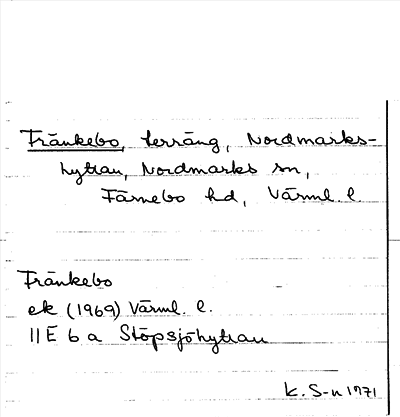 Fränkebo, terräng, Nordmarks-
hyttan, Nordmarks sn,
Färnebo hd, Värml. l.
Fränkebo
ek (1969) Värml. l.
11E 6 a Stöpsjöhyttan
K. S-n 1971